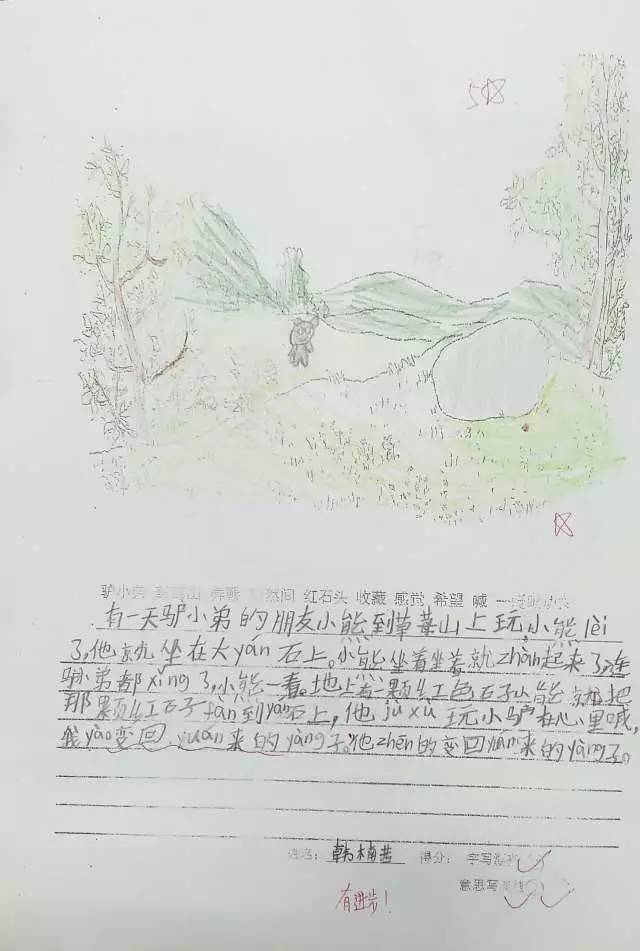 5☆
☆
驴小弟 草莓山 石头 红石头 收藏 感觉 希望 喊
有一天驴小弟的朋友小熊到草莓山上玩,小熊lèi
了,他就坐在大yán石上。小熊坐着坐着就zhàn起来了连
驴小弟都xǐng了,小熊一看。地上有一颗红色石子小熊就把
那颗红石子fàn到yán石上,他jùxù玩小驴在心里喊,
我yào变回yuán来的yàng子。他zhēn的变回yuán来的yàng子。
姓名: 韩楠茜 得分: 字写
意思写
有进步!